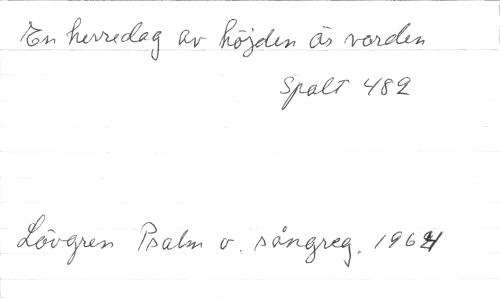 En herredag av höjden är vorden
Spalt 482
Lövgren Psalm o. sångreg. 1964